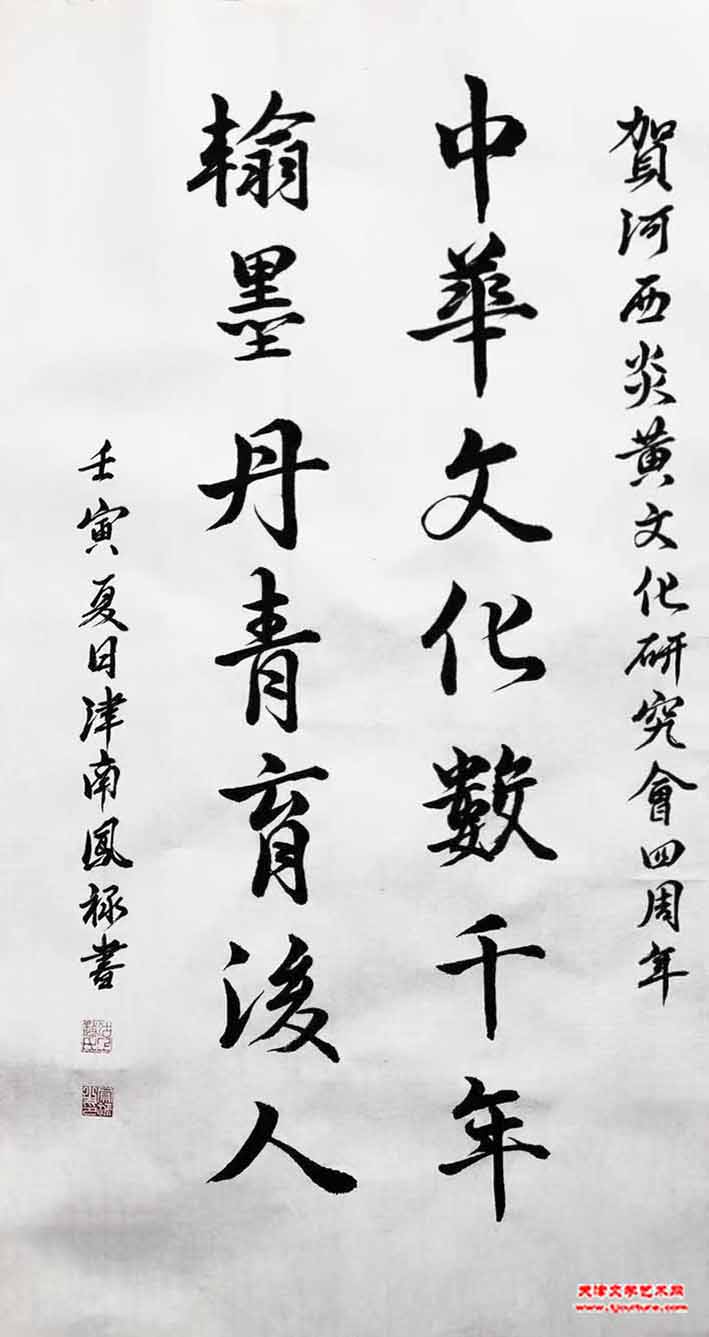 賀河西炎黃文化研究會四周年
中華文化數千年
翰墨丹青育後人
壬寅夏日津南鳳樑書
天津文学艺术网
www.tjculture.com